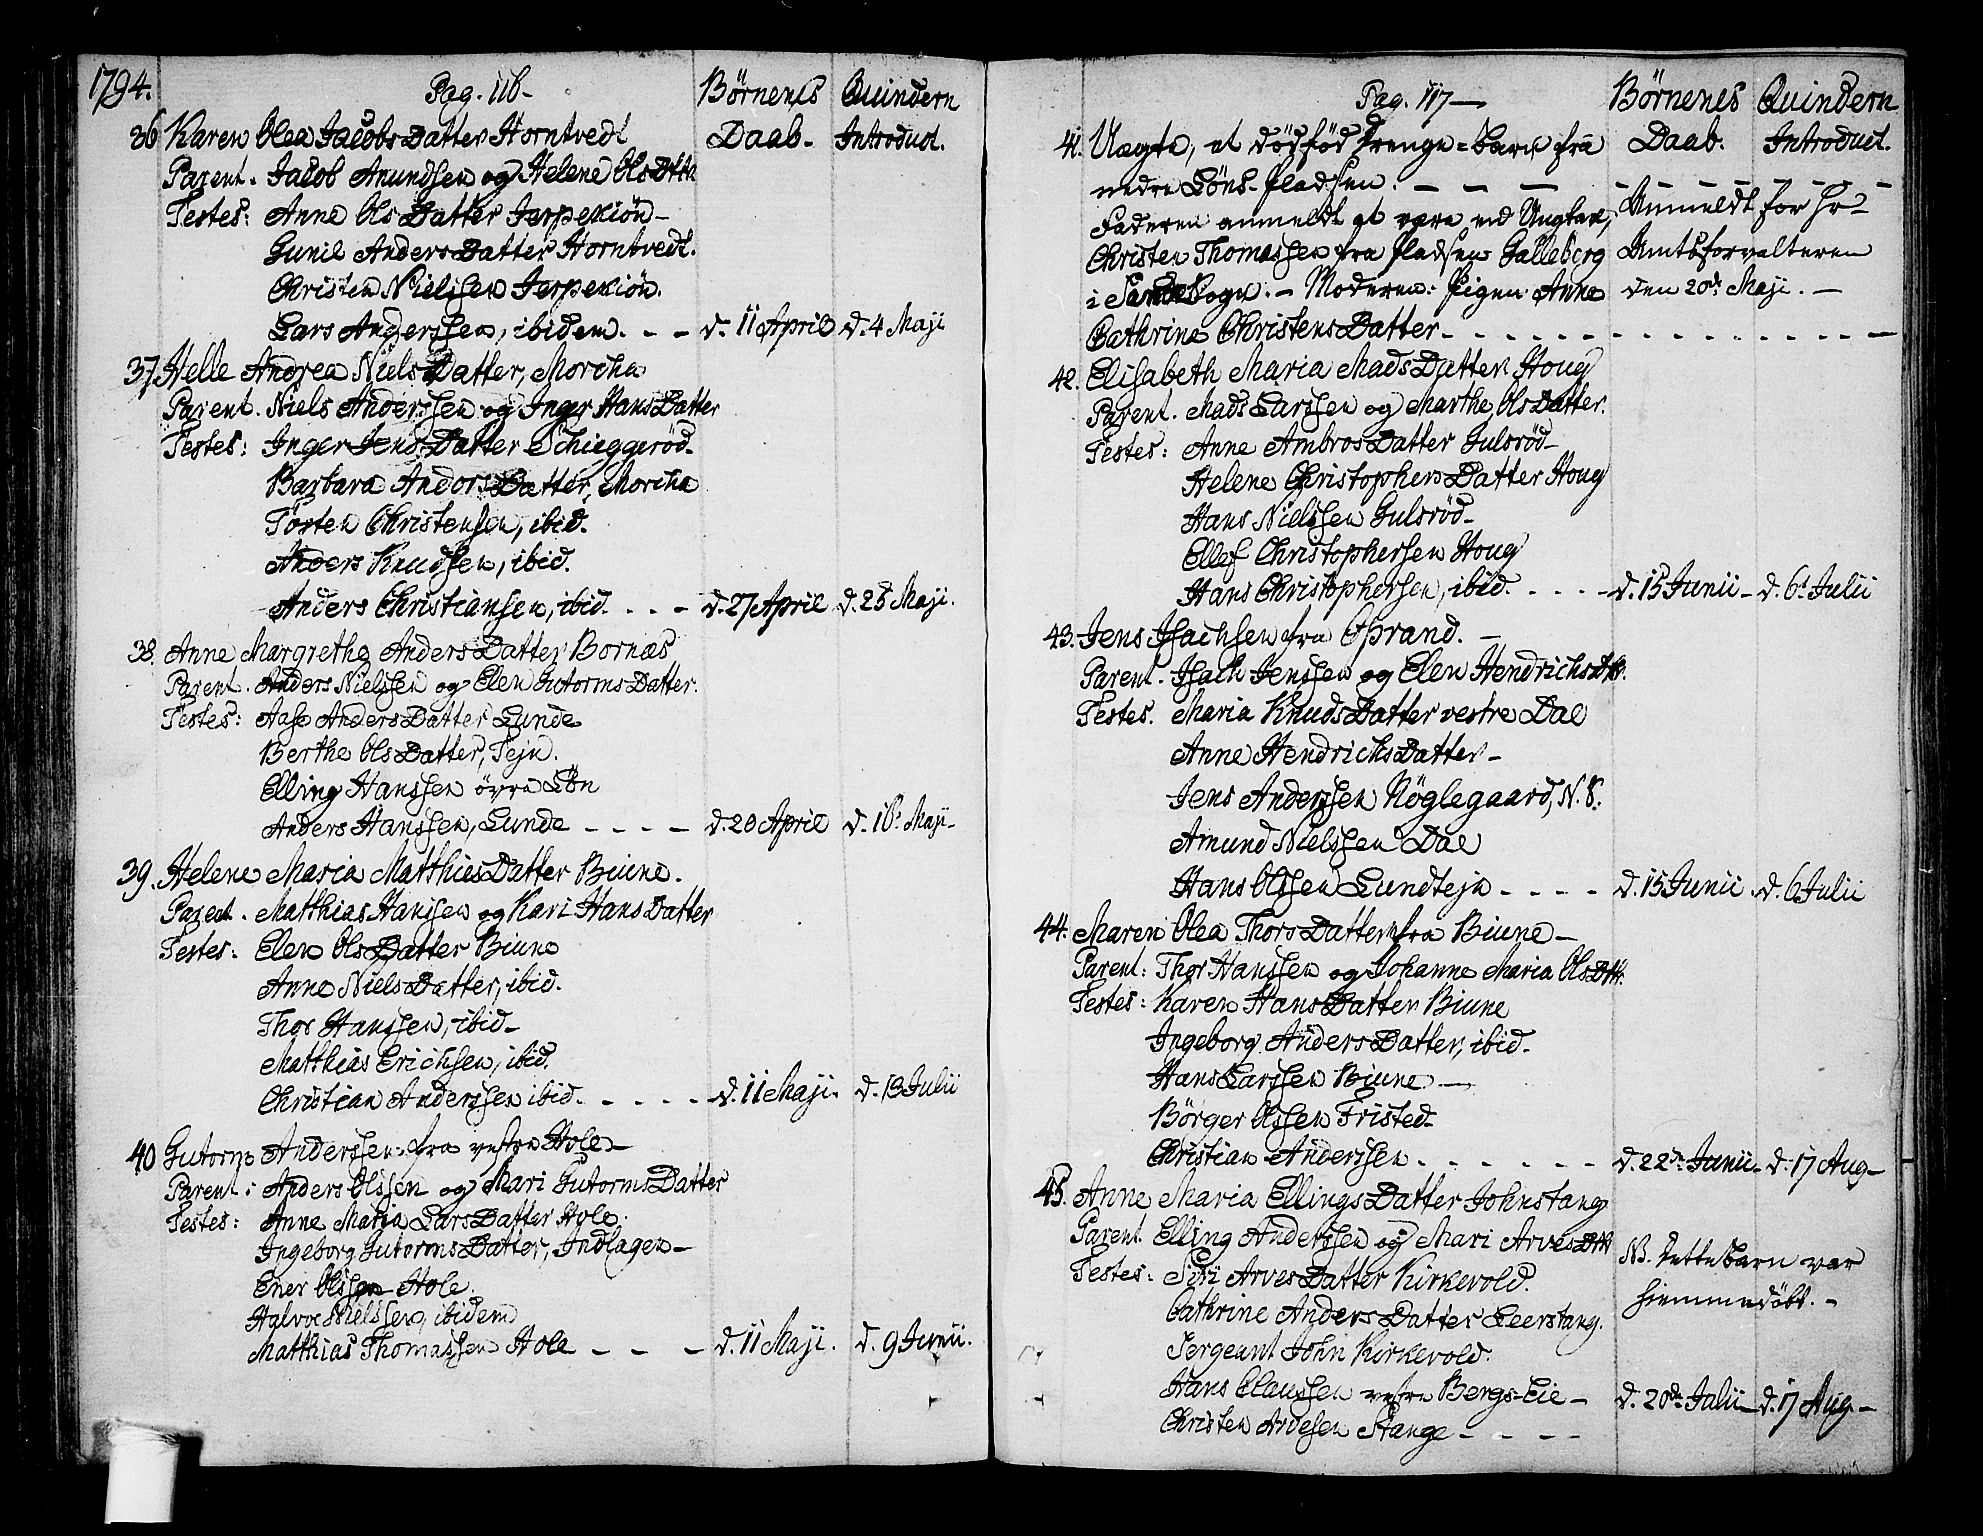 1794.
Pag. 116-
Börnenes Quindern
Daab. Introduct.
36 Karen Olea Jacobs Datter Horntvedt
Parent. Jacob Amundsen og Helene Ols Dttr
Testes: Anne Ols Datter Jerpekiön-
Gunil Anders Datter Horntvedt.
Christen Nielssen Jerpekiön.
Lars Anderssen, ibidem. - - d. 11 April d. 4 Maji
37. Helle Andrea Niels Datter, Morcha
Parent. Niels Anderssen og Inger Hans Datter
Testes: Inger Jens Datter Schieggeröd-
Barbara Anders Datter, Morcha
Torten Christensen, ibid.
Anders Knudsen, ibid.
Anders Christiansen, ibid. - - - d. 27 April d. 25 Maji.
38. Anne Margrethe Anders Datter Bornæs
Parent. Anders Nielssen og Elen Gutorms Datter.
Testes: Aase Anders Datter Lunde
Berthe Ols Datter, Tejn.
Elling Hanssen övre Lön
Anders Hanssen, Lunde - - - - d. 20 April d. 16. Maji-
39. Helene Maria Matthies Datter Biune.
Parent. Matthias Hanssen og Kari Hans Datter
Testes: Elen Ols Datter Biune
Anne Niels Datter, ibid.
Thor Hanssen, ibid-
Matthias Erichsen, ibid.
Christian Anderssen ibid. - - - - d. 11 Maji. d. 13 Julii
40 Gutorm Anderssen fra vestre Hole-
Parent: Anders Olssen og Mari Gutorms Datter
Testes: Anne Maria Lars Datter Hole.
Ingeborg Gutorms Datter, Indlagen-
Ener Olssen Hole.
Halvor Nielssen, ibidem
Matthias Thomassen Hole - - - d. 11 Maji. d. 9 Junii.
Pag. 117-
Börnenes Quindern
Daab. Introduct.
41. Uægte, et dödföd Drenge-barn fra
nedre Löns-Pladsen. - - -
Faderen anmeldt at være en Ungkarl,
Christen Thomassen fra Pladsen Galleberg
i Sande Sogn. - Moderen: Pigen Anne
Cathrine Christens Datter- - - -
Anmeldt for Hr-
Amtsforvalteren
den 20de Maji. -
42. Elisabeth Maria Mads Datter Houg
Parent. Mads Larssen og Marthe Ols Datter.
Testes: Anne Ambros Datter Gulsröd-
Helene Christophers Datter Houg
Hans Nielssen Gulsröd-
Ellef Christophersen Houg
Hans Christophersen, ibid. - - - - d. 15 Junii - d. 6t Julii
43. Jens Isachsen fra Oprand. -
Parent. Isach Jenssen og Elen Hendrichs Dttr.
Testes. Maria Knuds Datter vestre Dal
Anne Hendrichs Datter-
Jens Anderssen Nöglegaard, N. 8.
Amund Nielssen Dal
Hans Olssen Lundtejn - - - - d. 15 Junii. d. 6 Julii
44. Maren Olea Thors Datter fra Biune-
Parent: Thor Hanssen og Johanne Maria Ols Dttr.
Testes: Karen Hans Datter Biune
Ingeborg Anders Datter, ibid.
Hans Larssen Biune -
Börger Olssen Fristed-
Christian Anderssen - - - - - - d. 22de Junii- d. 17 Aug-
45. Anne Maria Ellings Datter Johnstang
Parent. Elling Anderssen og Mari Arves Dttr
Testes: Siri Arves Datter Kirkevold.
Cathrine Anders Datter Leerstang.
Sergeant John Kirkevold.
Hans Claussen vestre Bergs-Eie -
Christen Arvesen Stange - - - -
NB. dette barn var
hiemmedöbt. -
d. 20de Julii- d. 17 Aug-